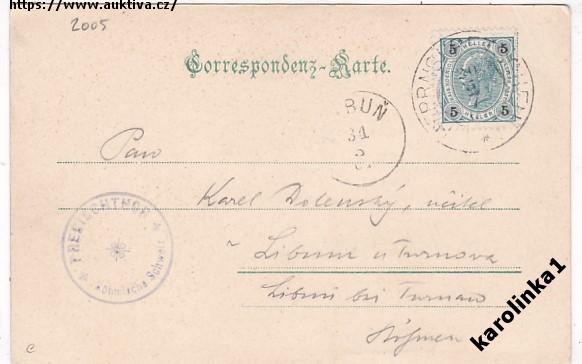 https://www.auktiva.cz/
2005
Correspondenz-Karte.
5 HELLER 5
5 HELLER 5
BUŇ
31
Pan
Karel Dolenský, učitel
v Libuni u Turnova
Libuň bei Turnau
Böhmen
PREBISCHTHOR
Böhmische Schweiz
karolinka1